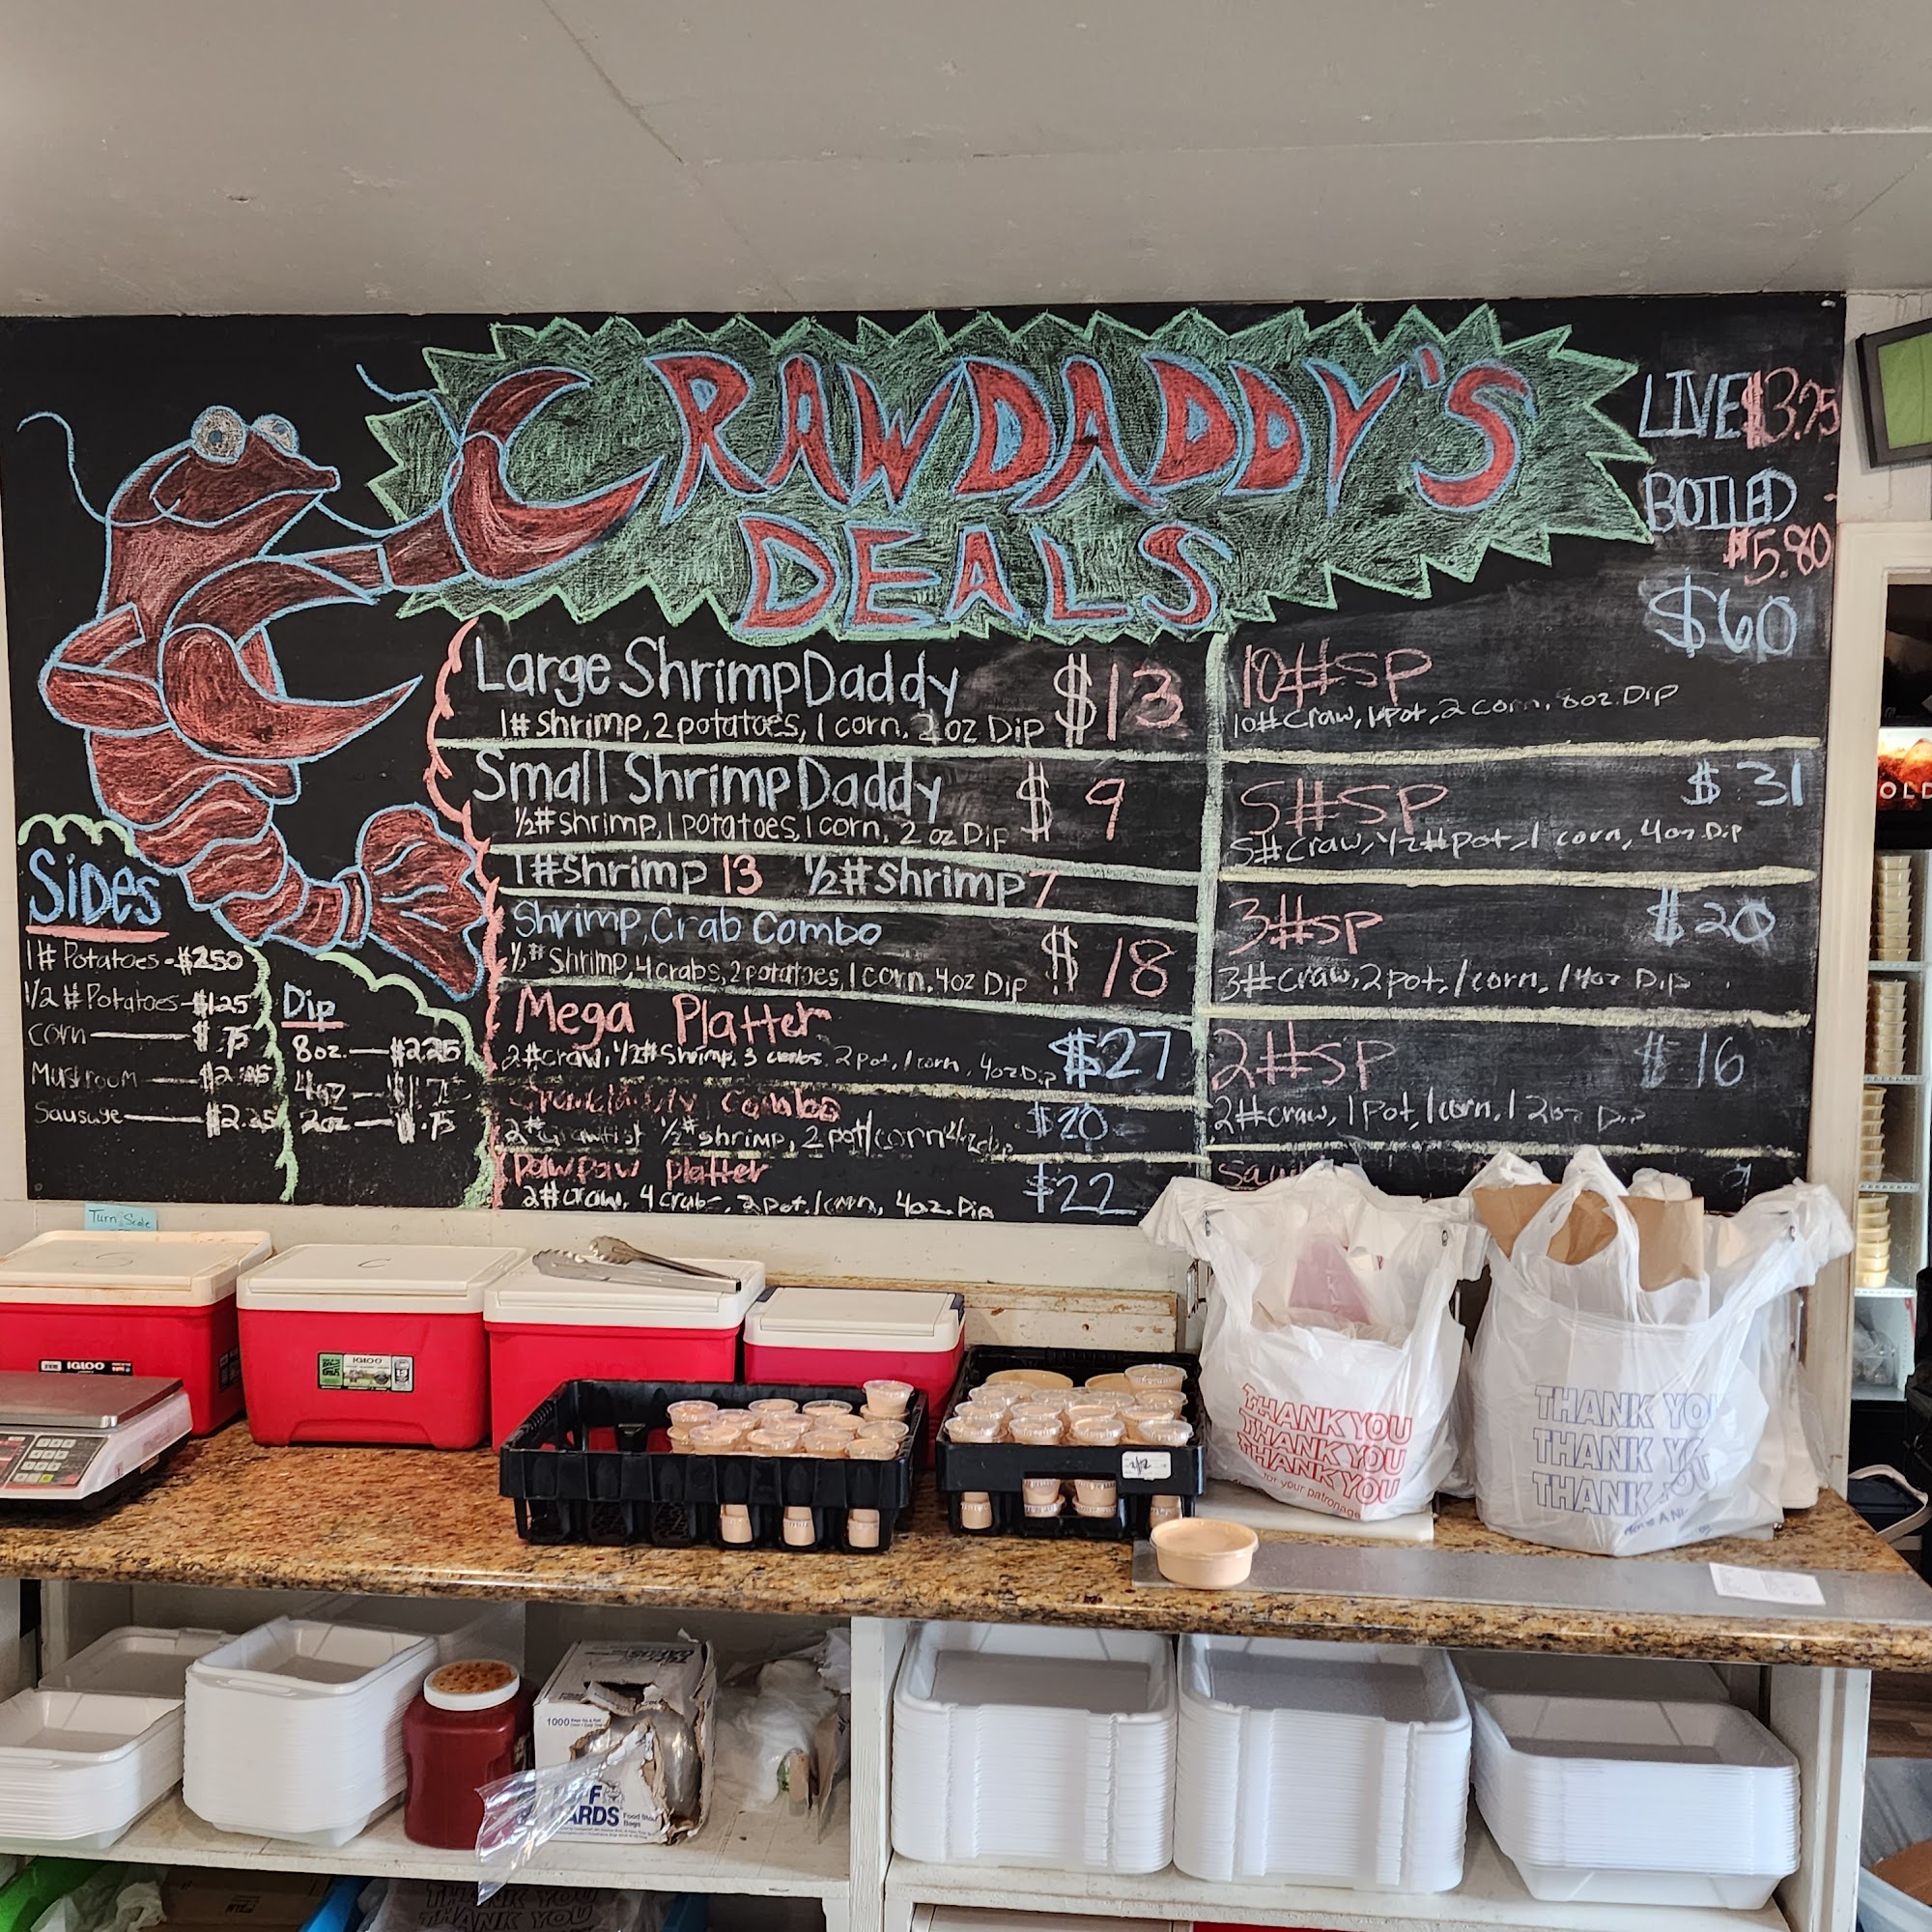 CRAWDADDY'S
DEALS
LIVE $3.75
BOILED
$5.80
Large ShrimpDaddy $13
1# shrimp, 2 potatoes, 1 corn, 2 oz Dip
Small ShrimpDaddy $9
½# shrimp, 1 potatoes, 1 corn, 2 oz Dip
1# shrimp 13 ½# shrimp 7
Shrimp, Crab Combo $18
½# Shrimp, 4 crabs, 2 potatoes, 1 corn, 4oz Dip
Mega Platter $27
2# craw, ½# Shrimp, 3 crabs, 2 pot, 1 corn, 4oz Dip
combo $20
½# shrimp, 2 pot/corn
PawPaw platter $22
2# craw, 4 crabs, 2 pot, 1 corn, 4oz. Dip
$60
10#SP
10# craw, 1# Pot, 2 corn, 8oz. Dip
5#SP $31
5# craw, 1/2# pot, 1 corn, 4oz Dip
3#SP $20
3# craw, 2 pot, 1 corn, 1 4oz Dip
2#SP $16
2# craw, 1 Pot, 1 corn, 1 2oz Dip
9
Sides
1# Potatoes - $2.50
1/2 # Potatoes - $1.25
corn $.75
Mushroom
Sausage $2.25
Dip
8oz. $2.25
4oz
2oz $.75
Turn Scale
IGLOO
IGLOO
THANK YOU
THANK YOU
THANK YOU
for your patronage
THANK YOU
THANK YOU
THANK YOU
OLD
1000
ARDS
Food Storage
Bags
THANK YOU
THANK YOU